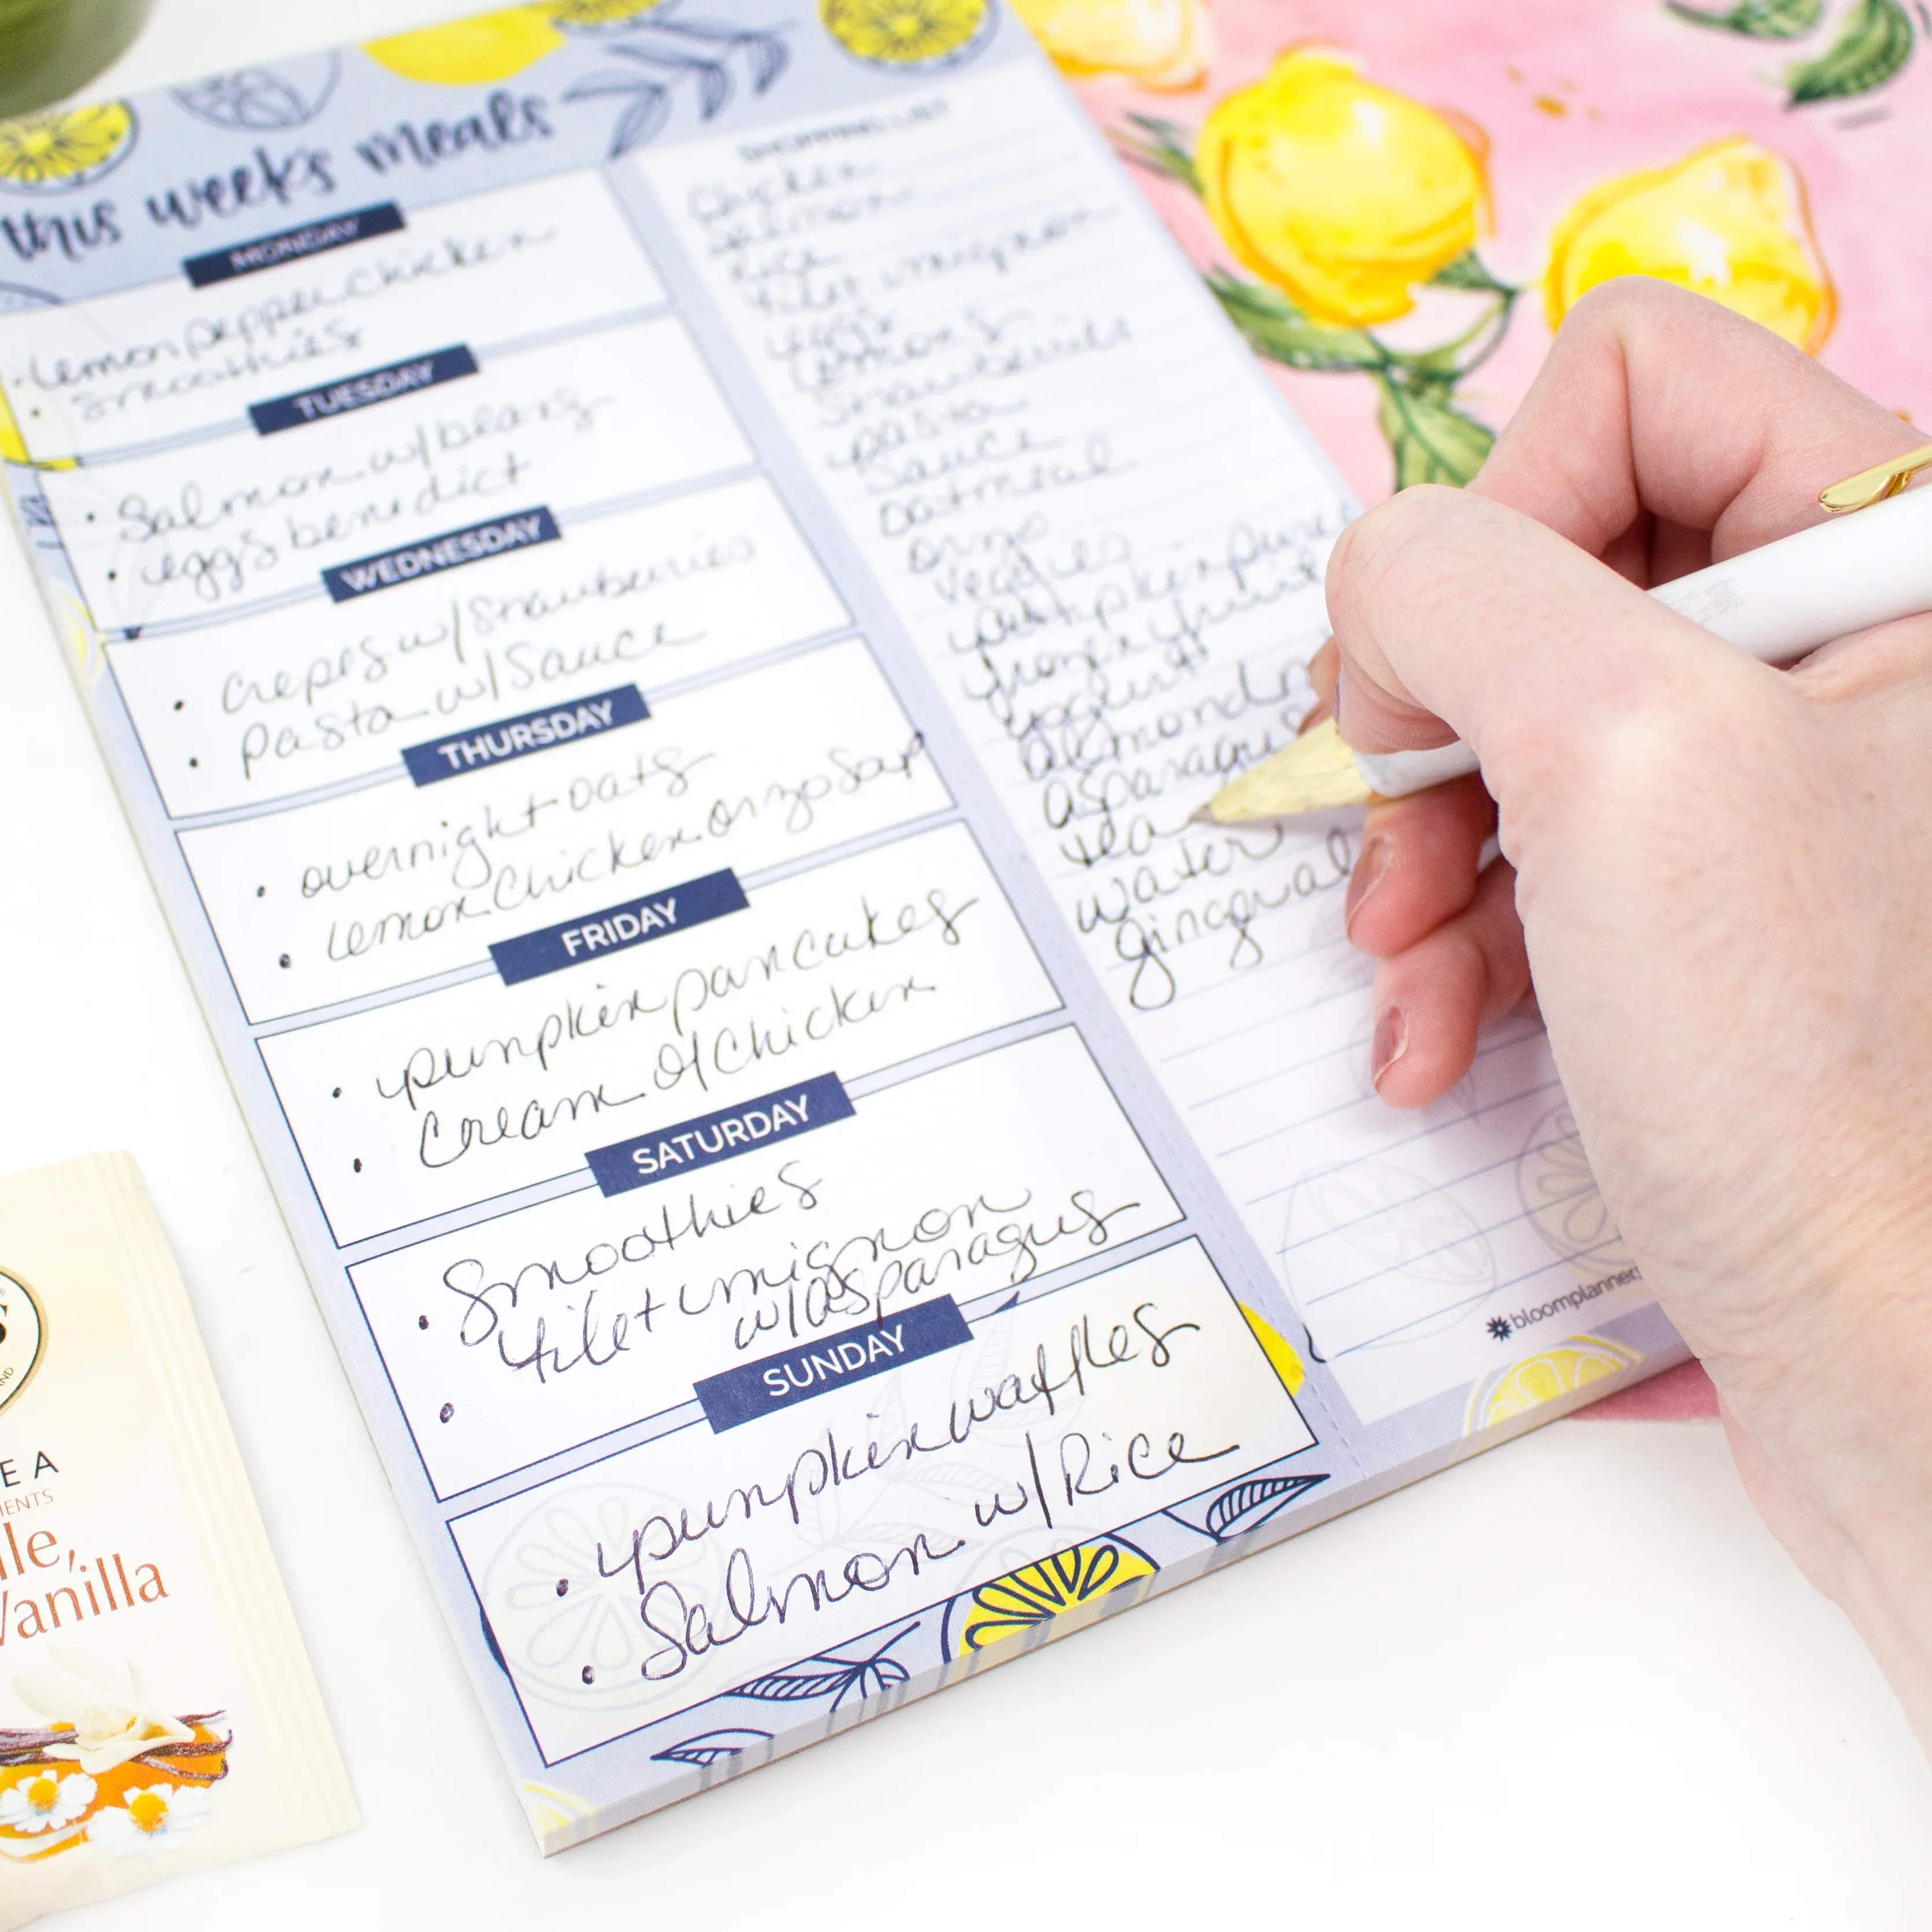 this week's meals
MONDAY
lemon pepper chicken
Smoothies
TUESDAY
Salmon w/beans
eggs benedict
WEDNESDAY
crepes w/Strawberries
pasta w/Sauce
THURSDAY
overnight oats
lemon Chicken Orzo Soup
FRIDAY
pumpkin pancakes
Cream of Chicken
SATURDAY
Smoothies
filet mignon
w/asparagus
SUNDAY
pumpkin waffles
Salmon w/Rice
SHOPPING LIST
Chicken
Salmon
Rice
filet mignon
eggs
Lemons
Strawberries
pasta
Sauce
oatmeal
orzo
veggies
pumpkin puree
frozen fruit
yogurt
almond
asparagus
tea
water
gingerale
bloomplanners
S
AND
EA
MENTS
lle,
Vanilla